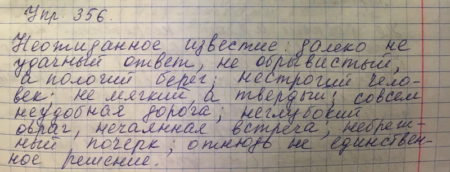 Упр 356.
Неожиданное известие; далеко не
удачный ответ, не обрывистый,
а пологий берег; нестрогий чело-
век; не мягкий, а твердый; совсем
неудобная дорога; неглубокий
овраг, нечаянная встреча, небреж-
ный почерк; отнюдь не единствен-
ное решение.